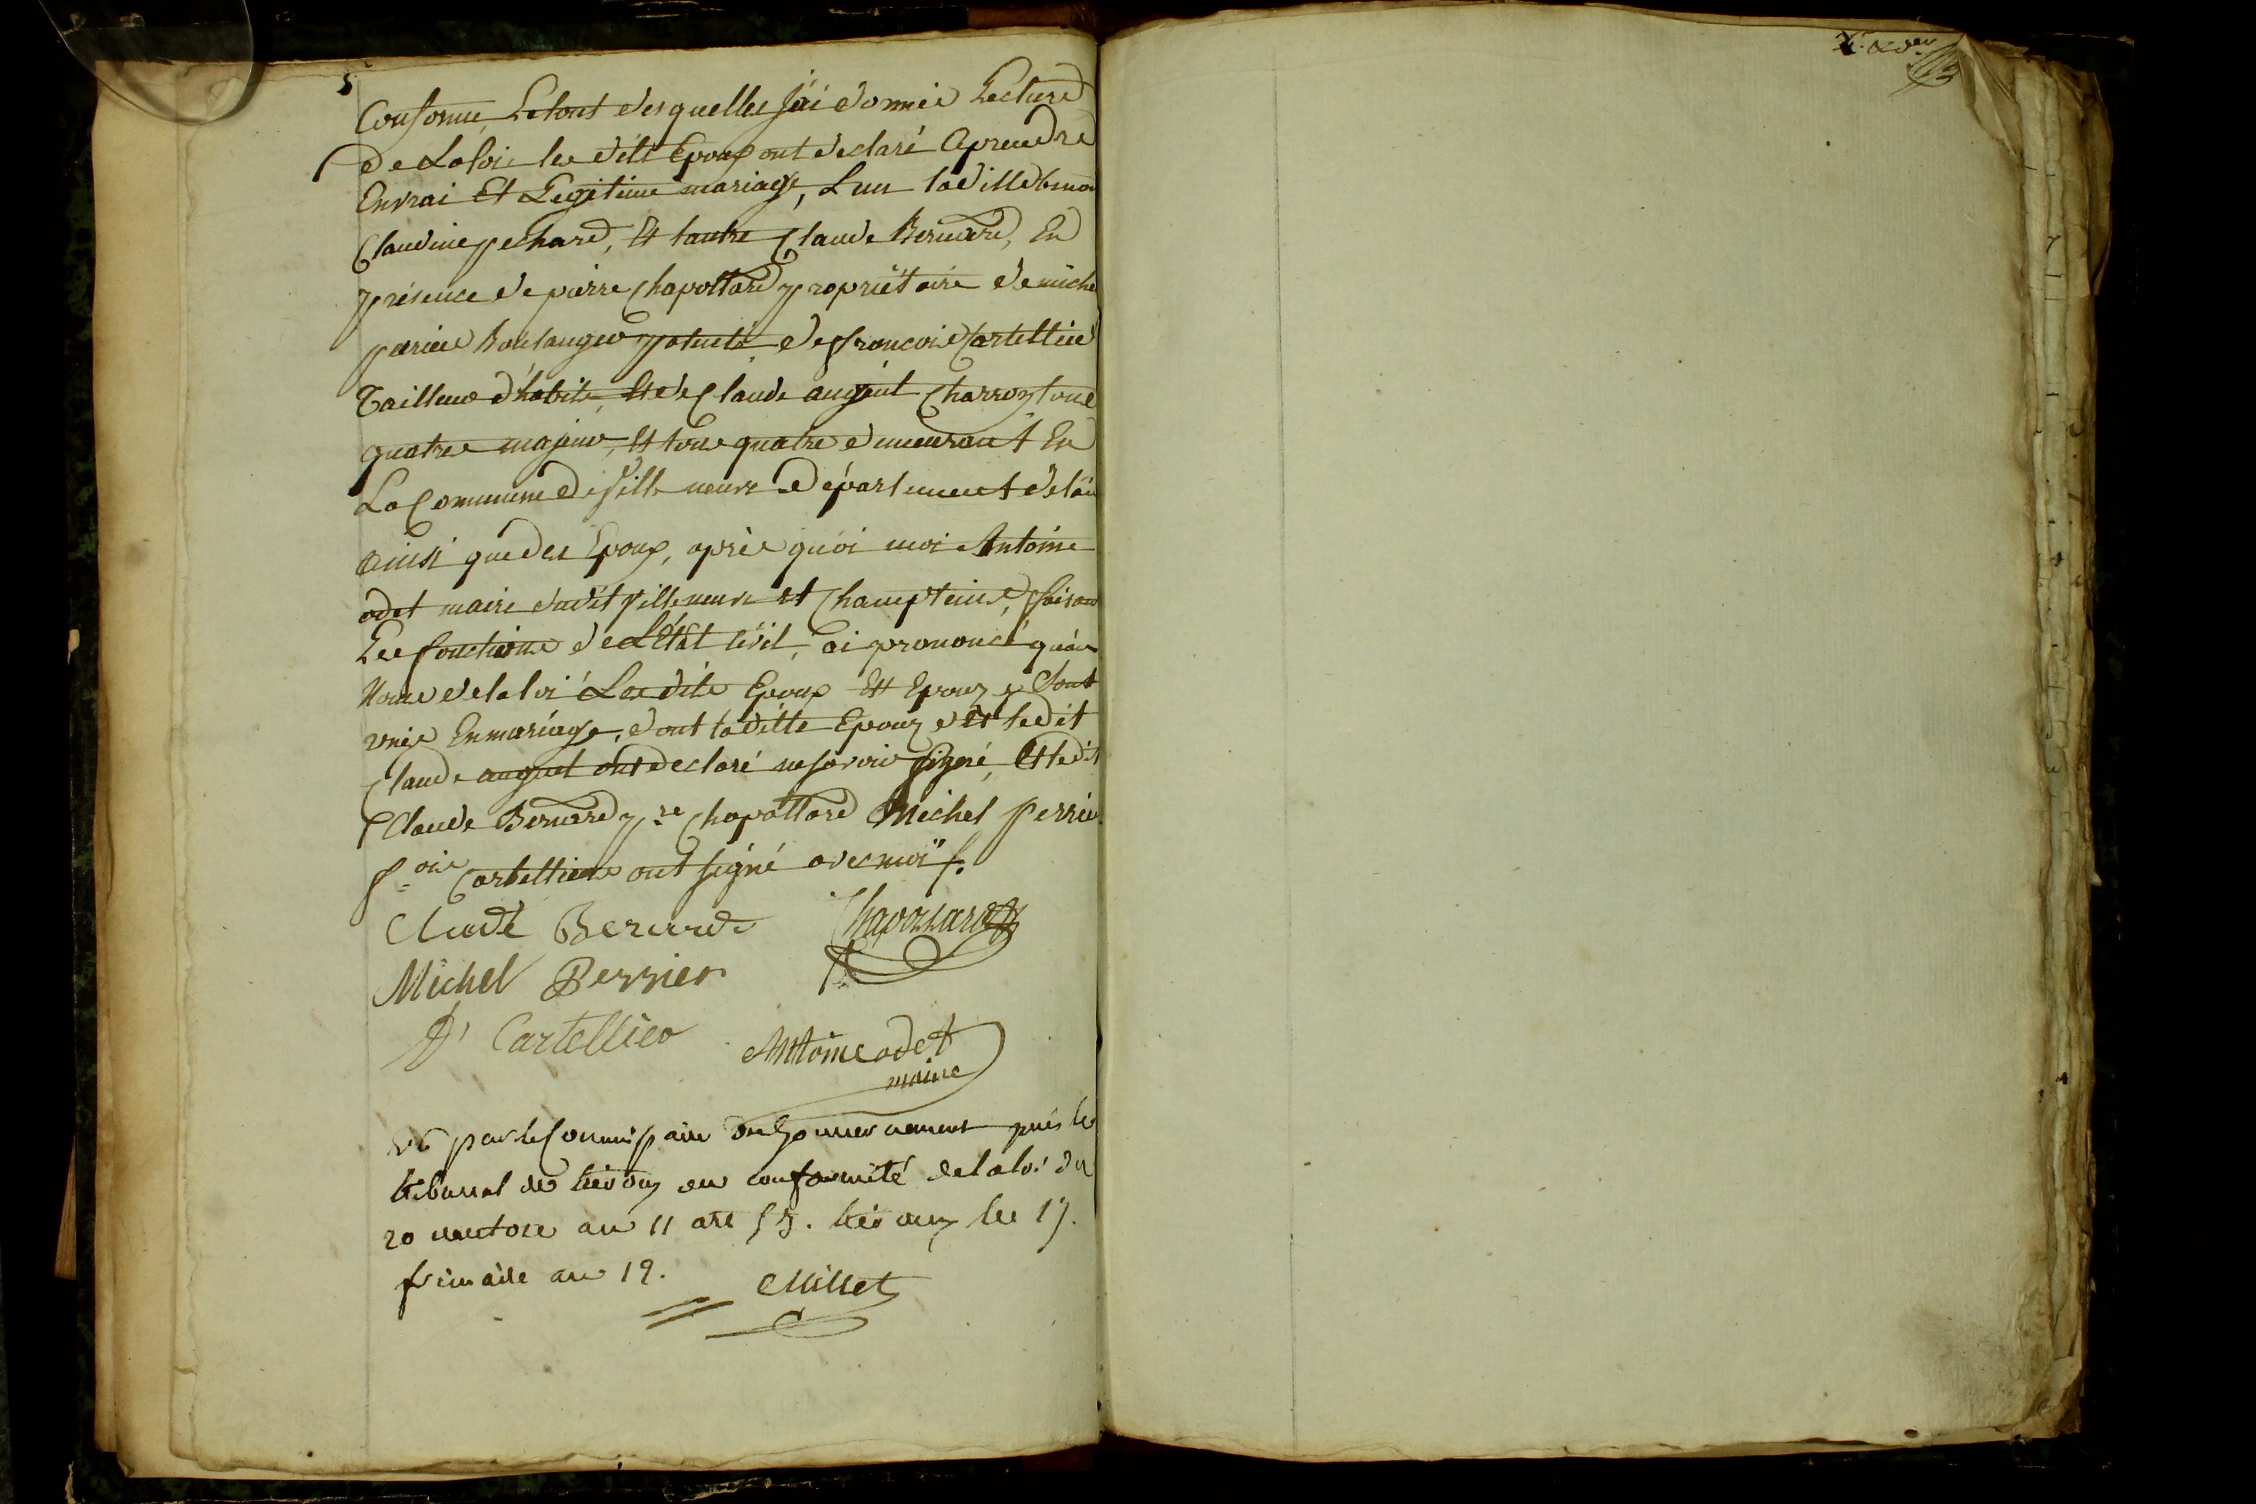 Conforme, Le tout desquelles j'ai donnée Lecture
de La loi, les dits Epoux ont declaré aprendre
En vrai Et Legitime mariage, L'un ladille
Claudine pechard, Et lautre Claude Bernard, En
présence de pierre Chapottard propriétaire de miche
perrier Boulanger patenté de francois Cartellier
Tailleur d'habits, Et de Claude auguet Charron tous
quatre majeur, Et tous quatre demeurant En
La Commune de Villeneuve Département de lain
ainsi que des Epoux, après quoi moi Antoine
odet maire dudit Villeneuve et Champteins, faisan
Les fonctions de L'État Civil, ai prononcé qu'au
Nom de la loi Les dits Epoux Et Epouze Sont
unis En mariage, dont la ditte Epouze Et le dit
Claude auguet ont declaré ne savoir signé, Et le dit
Claude Bernard pre Chapottard Michel perrier
f.ois Cartellier ont signé avec moi
Claude Berard Chapotard
Michel Perrier
fs Cartellier Antoine odet
maire
vu par le Commissaire du Gouvernement près le
tribunal de trévoux en conformité de la loi du
20 ventose an 11 art 53. trévoux le 17.
frimaire an 12. Millet